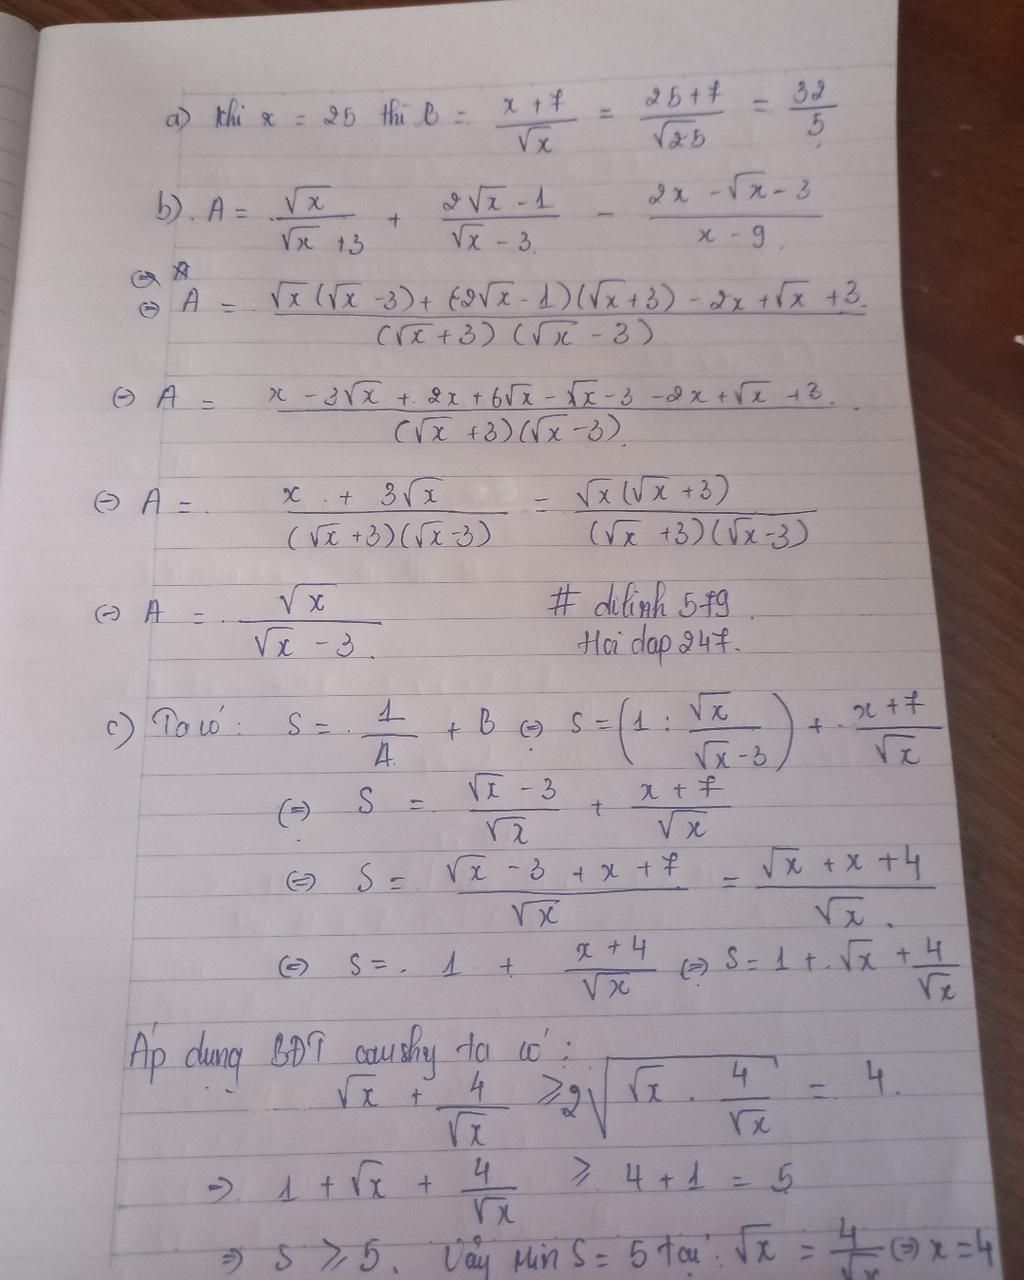 a) Khi x = 25 thì B = \frac{x+7}{\sqrt{x}} = \frac{25+7}{\sqrt{25}} = \frac{32}{5}
b). A = \frac{\sqrt{x}}{\sqrt{x}+3} + \frac{2\sqrt{x}-1}{\sqrt{x}-3} - \frac{2x-\sqrt{x}-3}{x-9}
⇔ A
⇔ A = \frac{\sqrt{x}(\sqrt{x}-3)+(2\sqrt{x}-1)(\sqrt{x}+3)-2x+\sqrt{x}+3}{(\sqrt{x}+3)(\sqrt{x}-3)}
⇔ A = \frac{x-3\sqrt{x}+2x+6\sqrt{x}-\sqrt{x}-3-2x+\sqrt{x}+3}{(\sqrt{x}+3)(\sqrt{x}-3)}
⇔ A = \frac{x+3\sqrt{x}}{(\sqrt{x}+3)(\sqrt{x}-3)} = \frac{\sqrt{x}(\sqrt{x}+3)}{(\sqrt{x}+3)(\sqrt{x}-3)}
⇔ A = \frac{\sqrt{x}}{\sqrt{x}-3} # dilinh 579
Hoi dap 247.
c) Ta có: S = \frac{1}{A} + B ⇔ S = (1 : \frac{\sqrt{x}}{\sqrt{x}-3}) + \frac{x+7}{\sqrt{x}}
⇔ S = \frac{\sqrt{x}-3}{\sqrt{x}} + \frac{x+7}{\sqrt{x}}
⇔ S = \frac{\sqrt{x}-3+x+7}{\sqrt{x}} = \frac{\sqrt{x}+x+4}{\sqrt{x}}
⇔ S = 1 + \frac{x+4}{\sqrt{x}} ⇔ S = 1 + \sqrt{x} + \frac{4}{\sqrt{x}}
Áp dụng BĐT caushy ta có:
\sqrt{x} + \frac{4}{\sqrt{x}} ≥ 2\sqrt{\sqrt{x} . \frac{4}{\sqrt{x}}} = 4.
⇒ 1 + \sqrt{x} + \frac{4}{\sqrt{x}} ≥ 4 + 1 = 5
⇒ S ≥ 5. Vậy Min S = 5 tại: \sqrt{x} = \frac{4}{\sqrt{x}} ⇔ x = 4